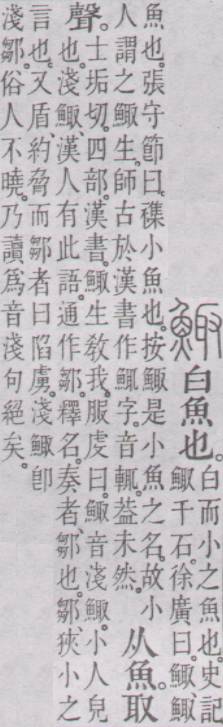 鯫
白魚也。
白而小之魚也。史記
鯫千石。徐廣曰。鯫、鯫
魚也。張守節曰。襍小魚也。按鯫是小魚之名。故小
人謂之鯫生。師古於漢書作鮿字。音輒。葢未然。
从魚。取
聲。
士垢切。四部。漢書。鯫生敎我。服虔曰。鯫音淺鯫。小人皃
也。淺鯫、漢人有此語。通作鄒。釋名。奏者、鄒也。鄒、狹小之
言也。又盾、約脅而鄒者曰陷虜。淺鯫卽
淺鄒。俗人不曉。乃讀爲音淺句絕矣。